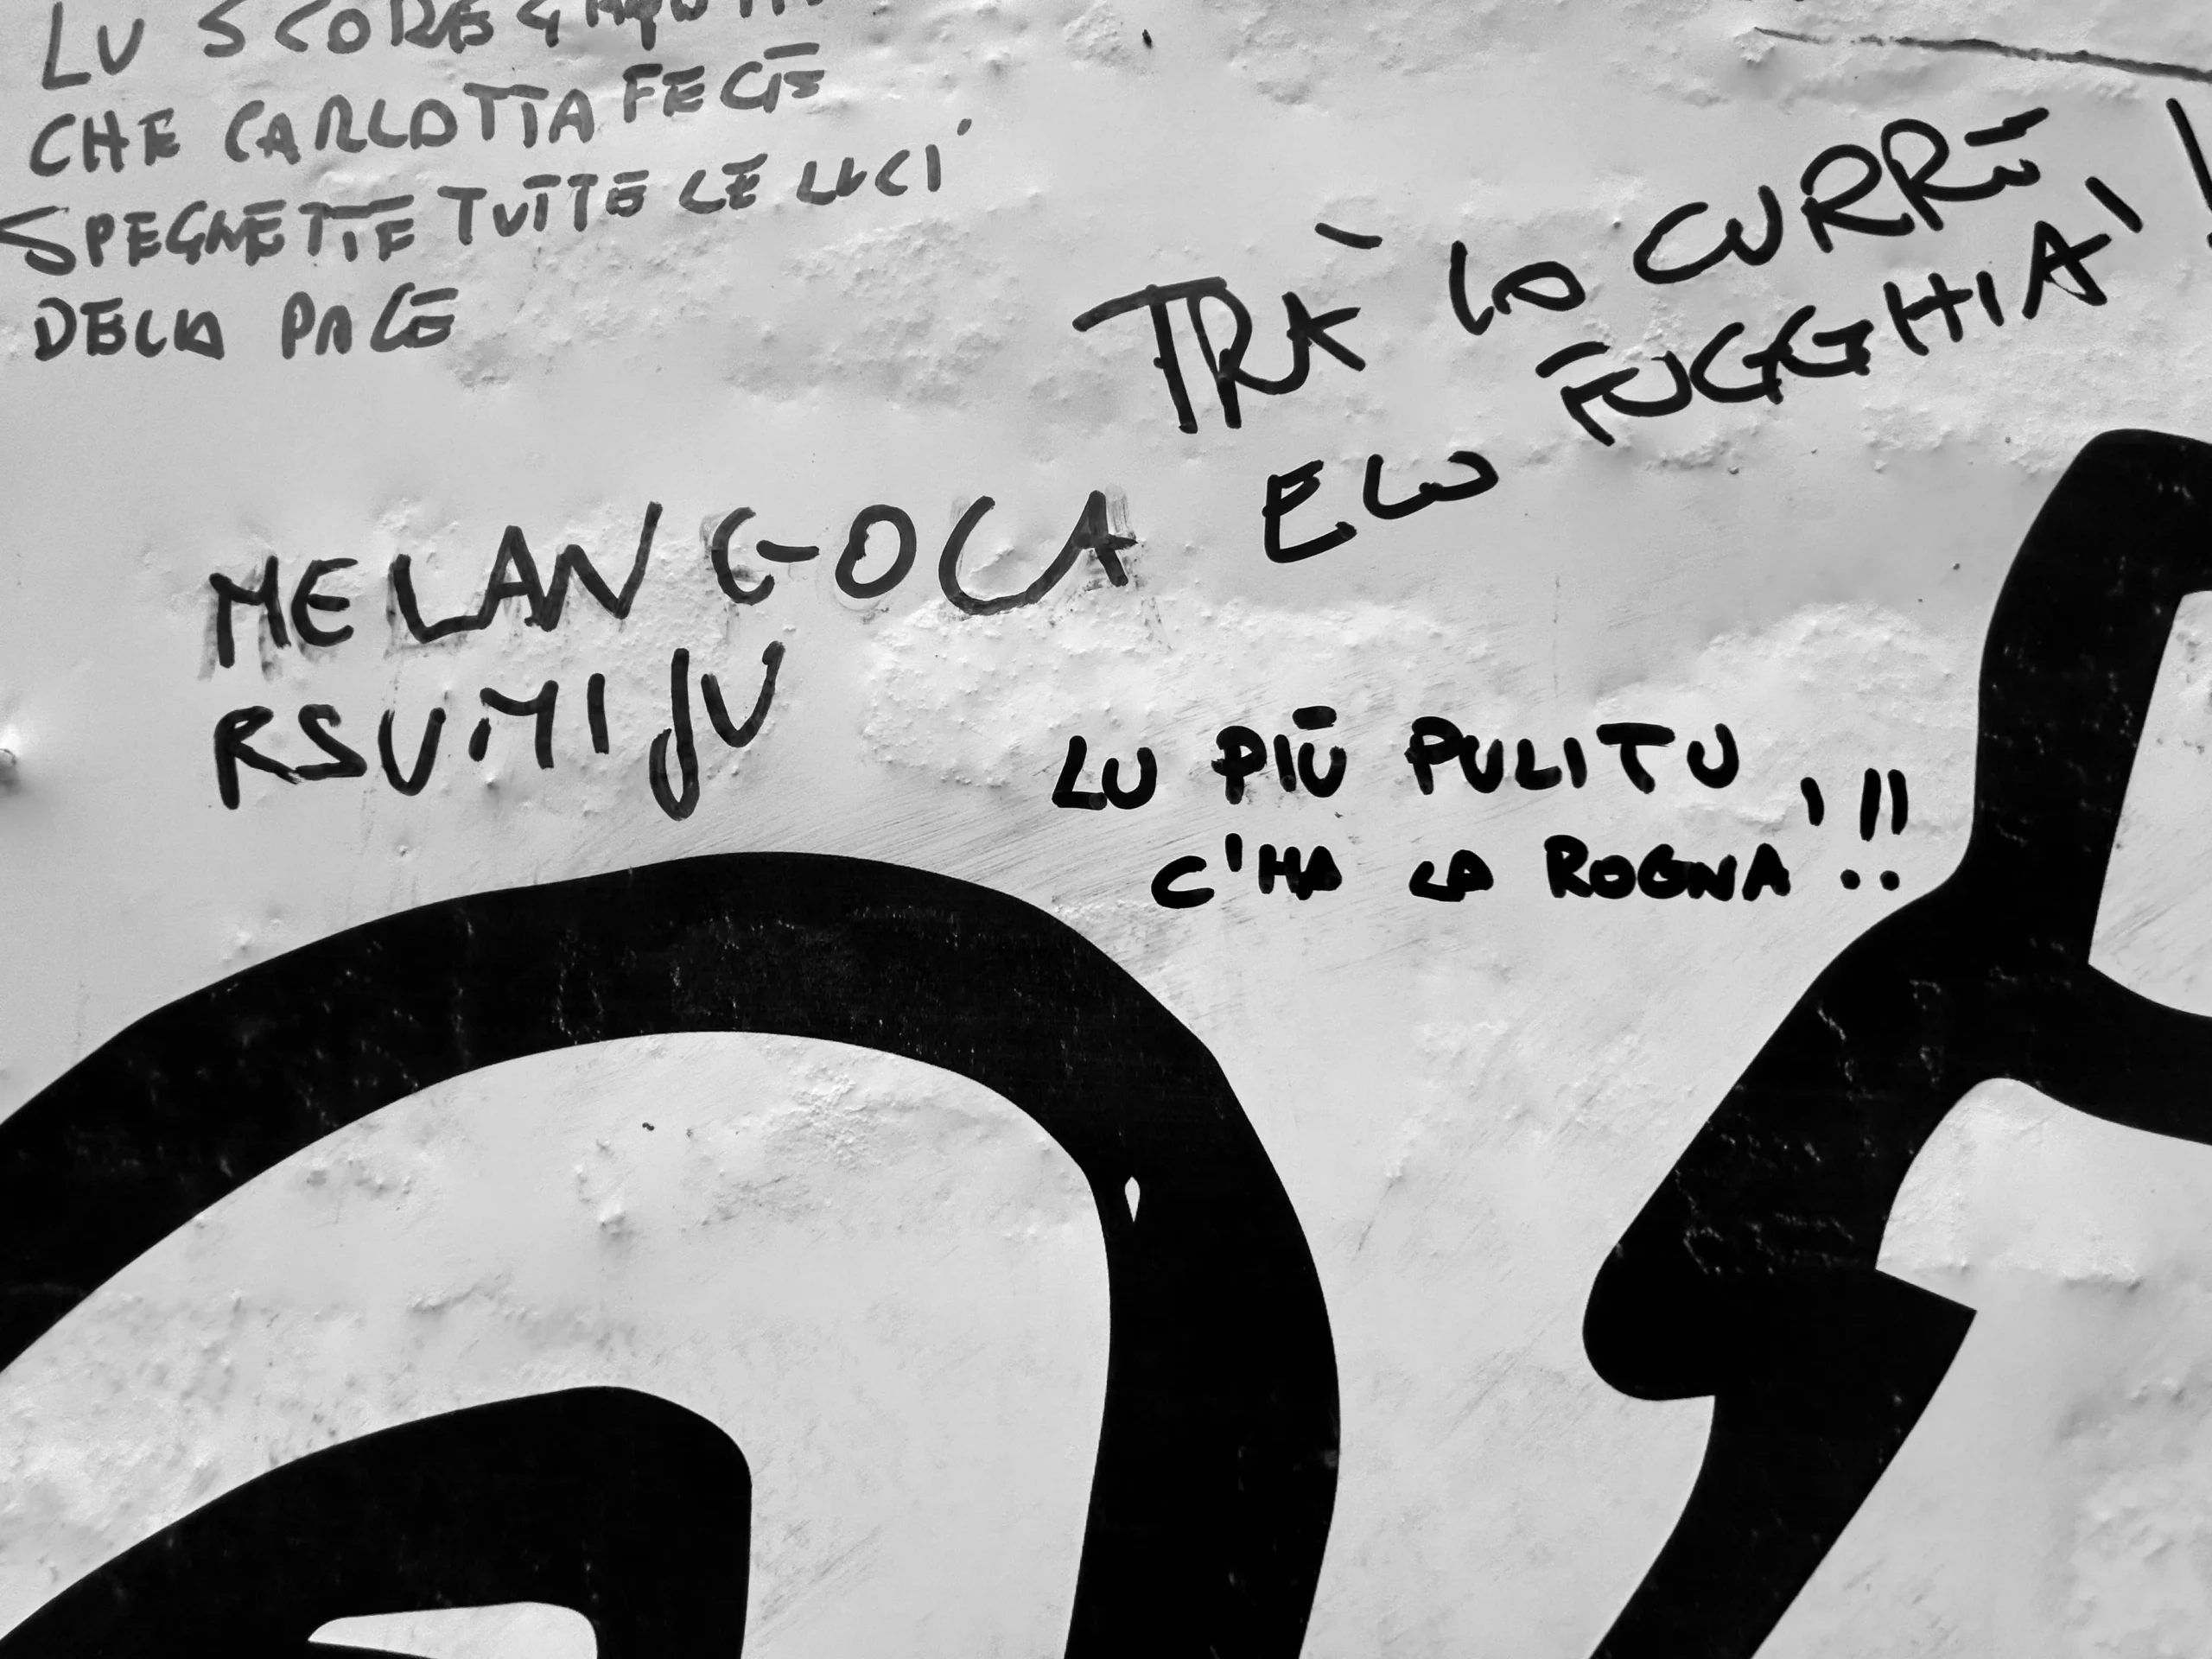 LU
CHE CARLOTTA FECE
SPEGNETTE TUTTE LE LUCI
DELLA PACE
TRA' LO CURRE
E LU FUGGHIA'
MELANGOLA
RSUMIJU
LU PIÙ PULITU
C'HA LA ROGNA !!!